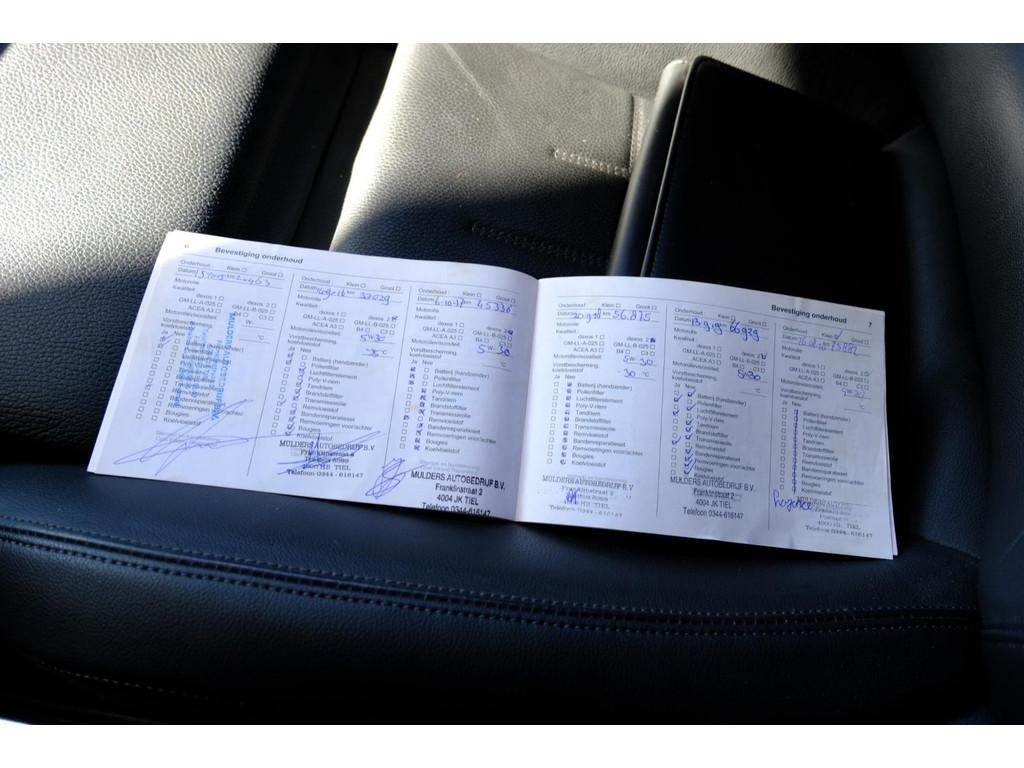 6 Bevestiging onderhoud
Onderhoud: Klein ☐ Groot ☐
Datum
Motorolie
Kwaliteit
dexos 1 ☐ dexos 2 ☐
GM-LL-A-025 ☐ GM-LL-B-025 ☐
ACEA A3 ☐ B4 ☐ C3 ☐
Motorolieviscositeit: W-
Vorstbescherming
koelvloeistof °C
Ja Nee
Batterij (handzender)
Pollenfilter
Bandenreparatieset
Remvoeringen voor/achter
Bougies
Koelvloeistof
Onderhoud: Klein ☐ Groot ☐
Datum km 32029
Motorolie
Kwaliteit
dexos 1 ☐ dexos 2
GM-LL-A-025 ☐ GM-LL-B-025 ☐
ACEA A3 ☐ B4 ☐ C3 ☐
Motorolieviscositeit: 5W-30
Vorstbescherming
koelvloeistof -35 °C
Ja Nee
Batterij (handzender)
Pollenfilter
Luchtfilterelement
Poly-V-riem
Tandriem
Brandstoffilter
Transmissieolie
Remvloeistof
Bandenreparatieset
Remvoeringen voor/achter
Bougies
Koelvloeistof
MULDERS AUTOBEDRIJF B.V.
Franklinstraat 2
4000 HB TIEL
Telefoon 0344 - 616147
Onderhoud: Klein ☐ Groot ☐
Datum 6-10-17 km 45330
Motorolie
Kwaliteit
dexos 1 ☐ dexos 2
GM-LL-A-025 ☐ GM-LL-B-025 ☐
ACEA A3 ☐ B4 ☐ C3 ☐
Motorolieviscositeit: 5W-30
Vorstbescherming
koelvloeistof °C
Ja Nee
Batterij (handzender)
Pollenfilter
Luchtfilterelement
Poly-V-riem
Tandriem
Brandstoffilter
Transmissieolie
Remvloeistof
Bandenreparatieset
Remvoeringen voor/achter
Bougies
Koelvloeistof
MULDERS AUTOBEDRIJF B.V.
Franklinstraat 2
4004 JK TIEL
Telefoon 0344-616147
Bevestiging onderhoud 7
Onderhoud: Klein ☐ Groot ☐
Datum km 56.875
Motorolie
Kwaliteit
dexos 1 ☐ dexos 2
GM-LL-A-025 ☐ GM-LL-B-025 ☐
ACEA A3 ☐ B4 ☐ C3 ☐
Motorolieviscositeit: 5W-30
Vorstbescherming
koelvloeistof -30 °C
Ja Nee
Batterij (handzender)
Pollenfilter
Luchtfilterelement
Poly-V-riem
Tandriem
Brandstoffilter
Transmissieolie
Remvloeistof
Bandenreparatieset
Remvoeringen voor/achter
Bougies
Koelvloeistof
MULDERS AUTOBEDRIJF B.V.
Franklinstraat 2
4000 HB TIEL
Telefoon 0344 - 616147
Onderhoud: Klein ☐ Groot ☐
Datum 66929
Motorolie
Kwaliteit
dexos 1 ☐ dexos 2
GM-LL-A-025 ☐ GM-LL-B-025 ☐
ACEA A3 ☐ B4 ☐ C3 ☐
Motorolieviscositeit: 5W-30
Vorstbescherming
koelvloeistof °C
Ja Nee
Batterij (handzender)
Pollenfilter
Luchtfilterelement
Poly-V-riem
Tandriem
Brandstoffilter
Transmissieolie
Remvloeistof
Bandenreparatieset
Remvoeringen voor/achter
Bougies
Koelvloeistof
MULDERS AUTOBEDRIJF B.V.
Franklinstraat 2
4004 JK TIEL
Telefoon 0344-616147
Onderhoud: Klein Groot ☐
Datum
Motorolie
Kwaliteit
dexos 1 ☐ dexos 2
GM-LL-A-025 ☐ GM-LL-B-025 ☐
ACEA A3 ☐ B4 ☐ C3 ☐
Motorolieviscositeit: 5W-30
Vorstbescherming
koelvloeistof °C
Ja Nee
Batterij (handzender)
Pollenfilter
Luchtfilterelement
Poly-V-riem
Tandriem
Brandstoffilter
Transmissieolie
Remvloeistof
Bandenreparatieset
Remvoeringen voor/achter
Bougies
Koelvloeistof
MULDERS AUTOBEDRIJF B.V.
4000 HB TIEL
Telefoon 0344 - 616147